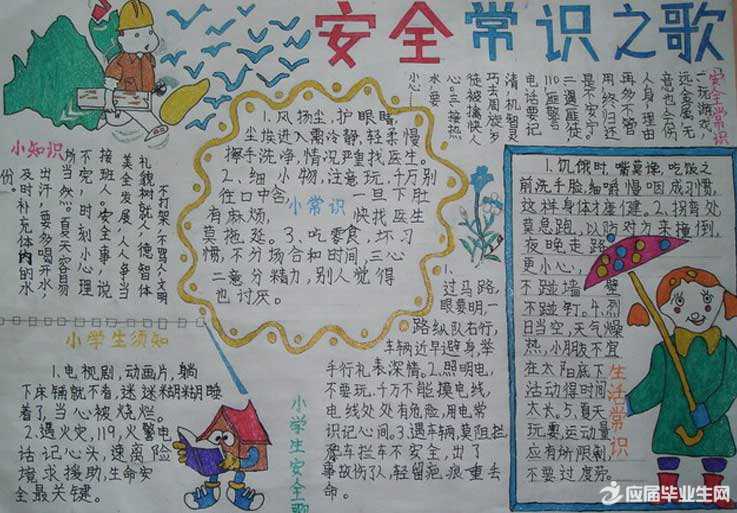 安全常识之歌
安全常识
一、玩游戏,
远金属,无
意也会伤
人身,理由
再多不管
用,终归还
是不安宁。
二遇匪徒,
110匪警
电话要记
清,机智灵
巧去周旋,歹
徒被擒快人
心。三、接热
水,要
小心……
小知识
不打架,不骂人,文明
礼貌树新人,德智体
美全发展,人人争当
接班人。安全事,说
不完,时刻小心理
所当然。夏天容易
出汗,要多喝开水,
及时补充体内的水
份。
小常识
1.风扬尘,护眼睛,
尘埃进入需冷静,轻柔慢
擦手洗净,情况严重找医生。
2、细小物,注意玩,千万别
往口中含 一旦下肚
有麻烦, 快找医生
莫拖延。3、吃零食,坏习
惯,不分场合和时间,三心
二意分精力,别人觉得
也讨厌。
1.饥饿时,嘴莫馋,吃饭之
前洗手脸,细嚼慢咽成习惯,
这样身体才康健。2、拐弯处
莫急跑,以防对方来撞倒,
夜晚走路
更小心,
不碰墙壁
不碰钉。4.烈
日当空,天气燥
热,小朋友不宜
在太阳底下
活动得时间
太长。5.夏天
玩耍,运动量
应有所限制
不要过度疲
生活常识
小学生须知
1.电视剧,动画片,躺
下床铺就不看,迷迷糊糊睡
着了,当心被烧烂。
2.遇火灾,119,火警电
话记心头,速离险
境求援助,生命安
全最关键。
小学生安全歌
1.
过马路,
眼要明,一
路纵队右行,
车辆近早避身,举
手行礼表深情。2.照明电,
不要玩,千万不能摸电线,
电线处处有危险,用电常
识记心间。3.遇车辆,莫阻拦
爬车拦车不安全,出了
事故伤了人,轻留疤痕重丢
命。
应届毕业生网